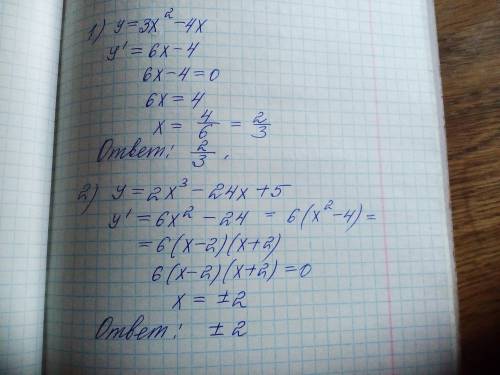 1) y=3x²-4x
y'=6x-4
6x-4=0
6x=4
x= 4/6 = 2/3
Ответ: 2/3.
2) y=2x³-24x+5
y'=6x²-24 = 6(x²-4)=
=6(x-2)(x+2)
6(x-2)(x+2)=0
x= ±2
Ответ: ±2